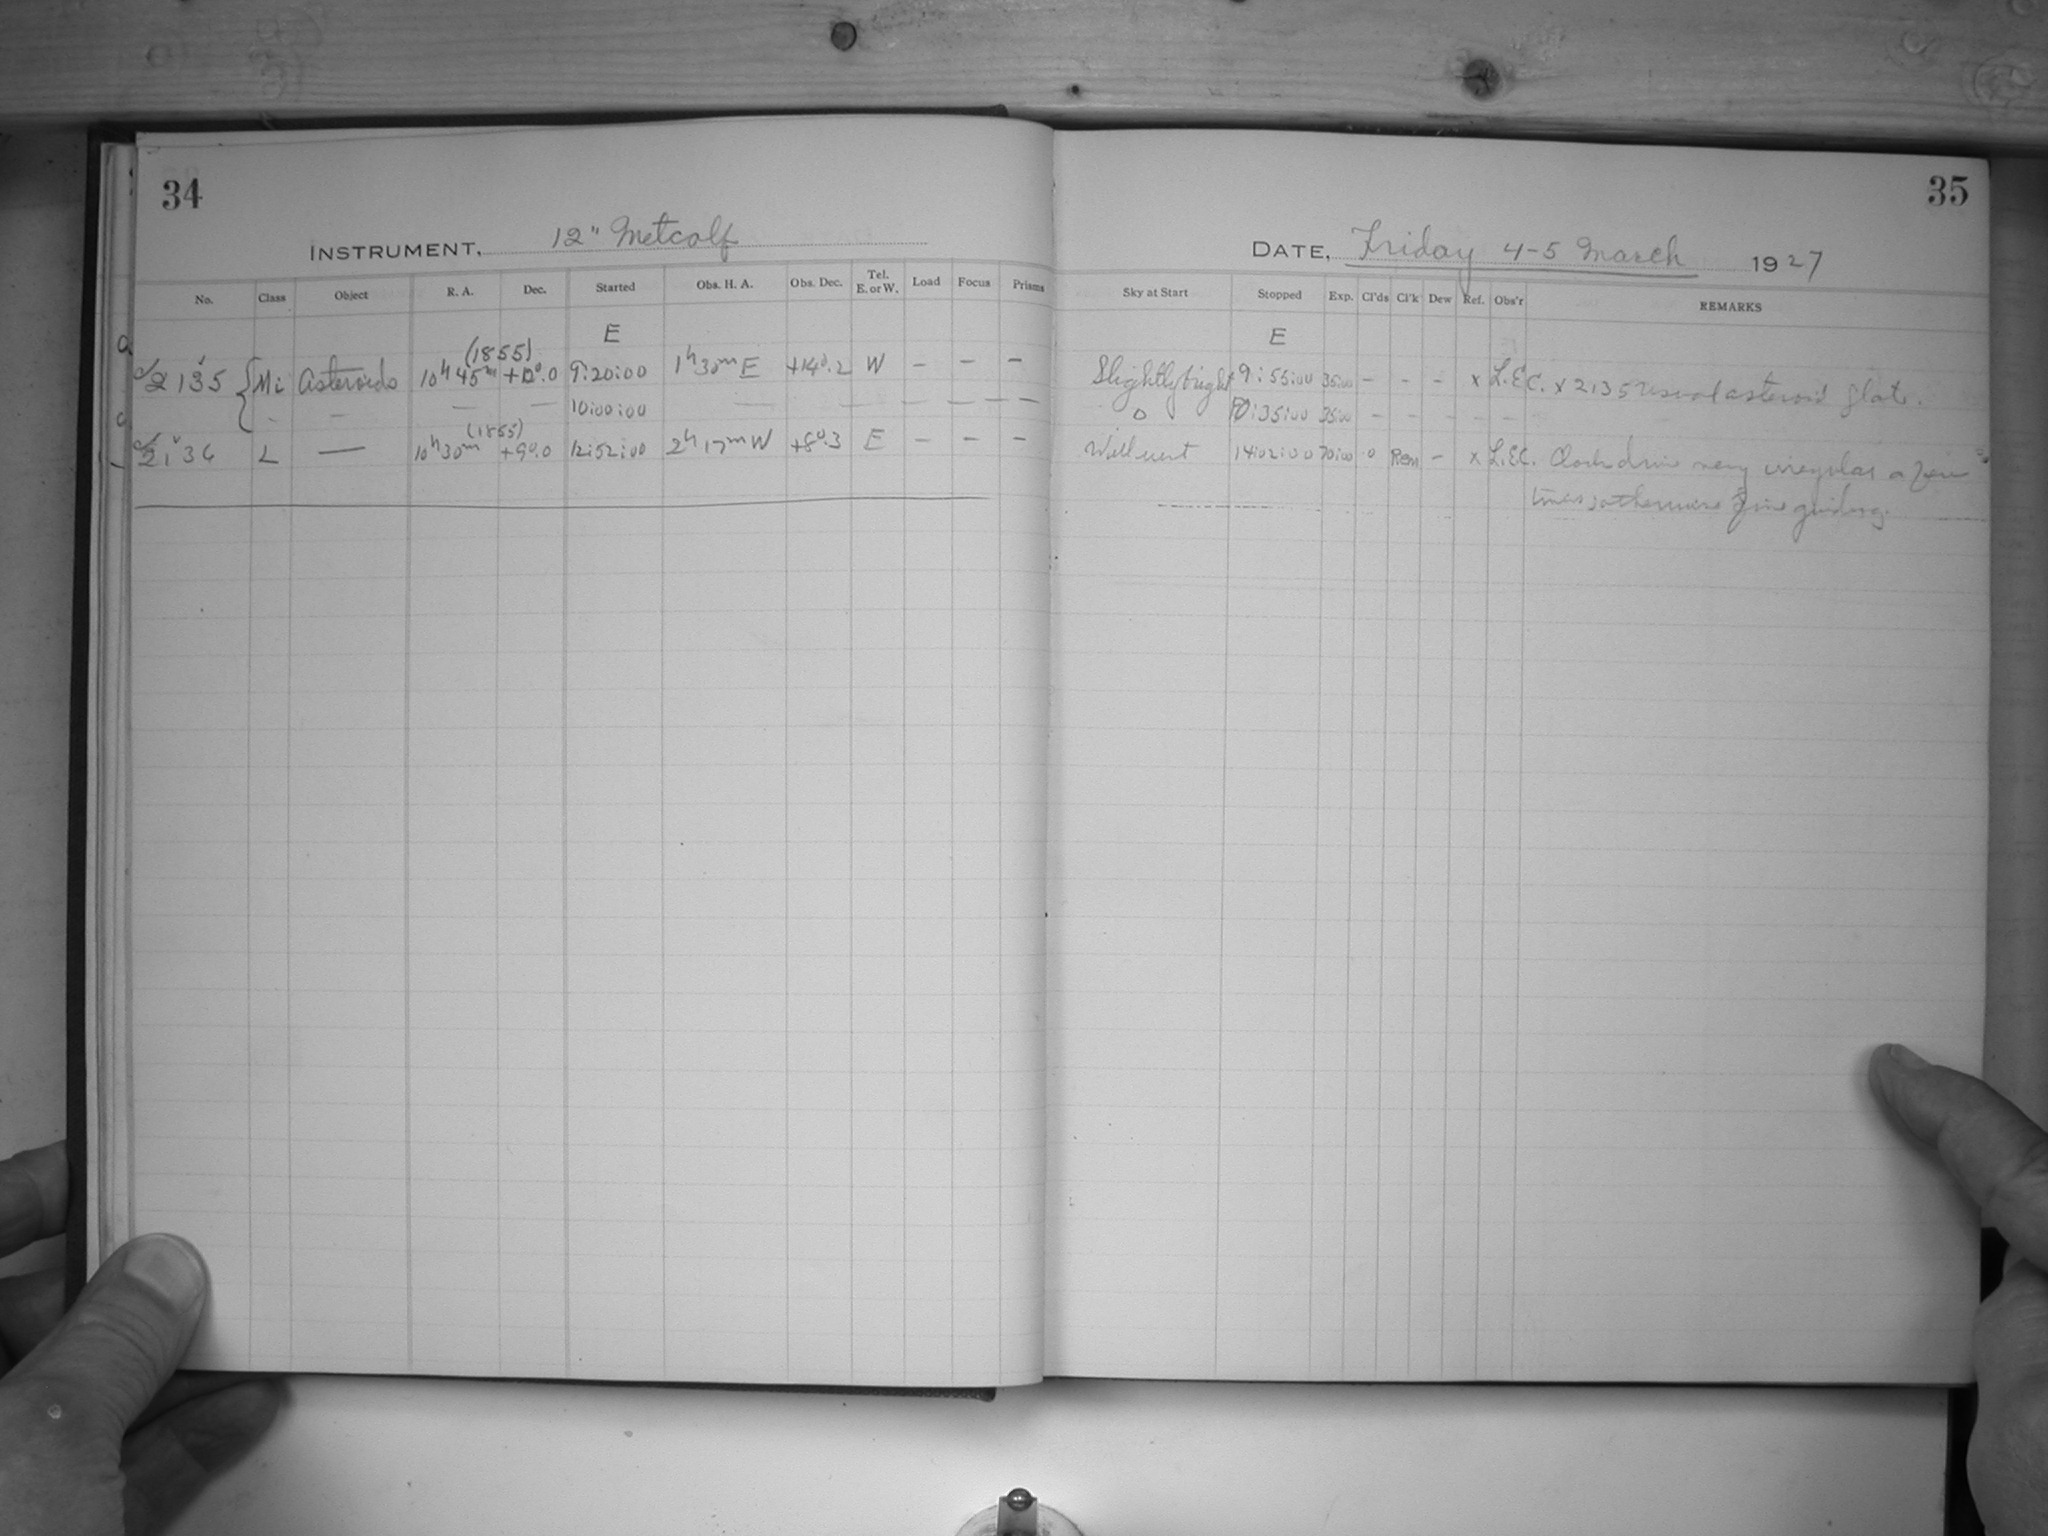 34
INSTRUMENT, 12" Metcalf
No. Class Object R. A. Dec. Started Obs. H. A. Obs. Dec. Tel. E. or W. Load Focus Prisms
E
(1855)
2135 Mi Asteroids 10h 45m +12°.0 9:20:00 1h30mE +14°.2 W — — —
— — — — 10:00:00 — — — — — —
(1855)
2136 L — 10h30m +9°.0 12:52:00 2h17mW +8°.3 E — — —
35
DATE, Friday 4-5 March 1927
Sky at Start Stopped Exp. Cl'ds Cl'k Dew Ref. Obs'r REMARKS
E
Slightly bright 9:55:00 35:00 — — — x L.E.C. x 2135 Usual asteroid plate.
0 10:35:00 35:00 — — — — —
14:02:00 70:00 0 — x L.E.C. Clock drive very irregular a few
times, otherwise fine guiding.